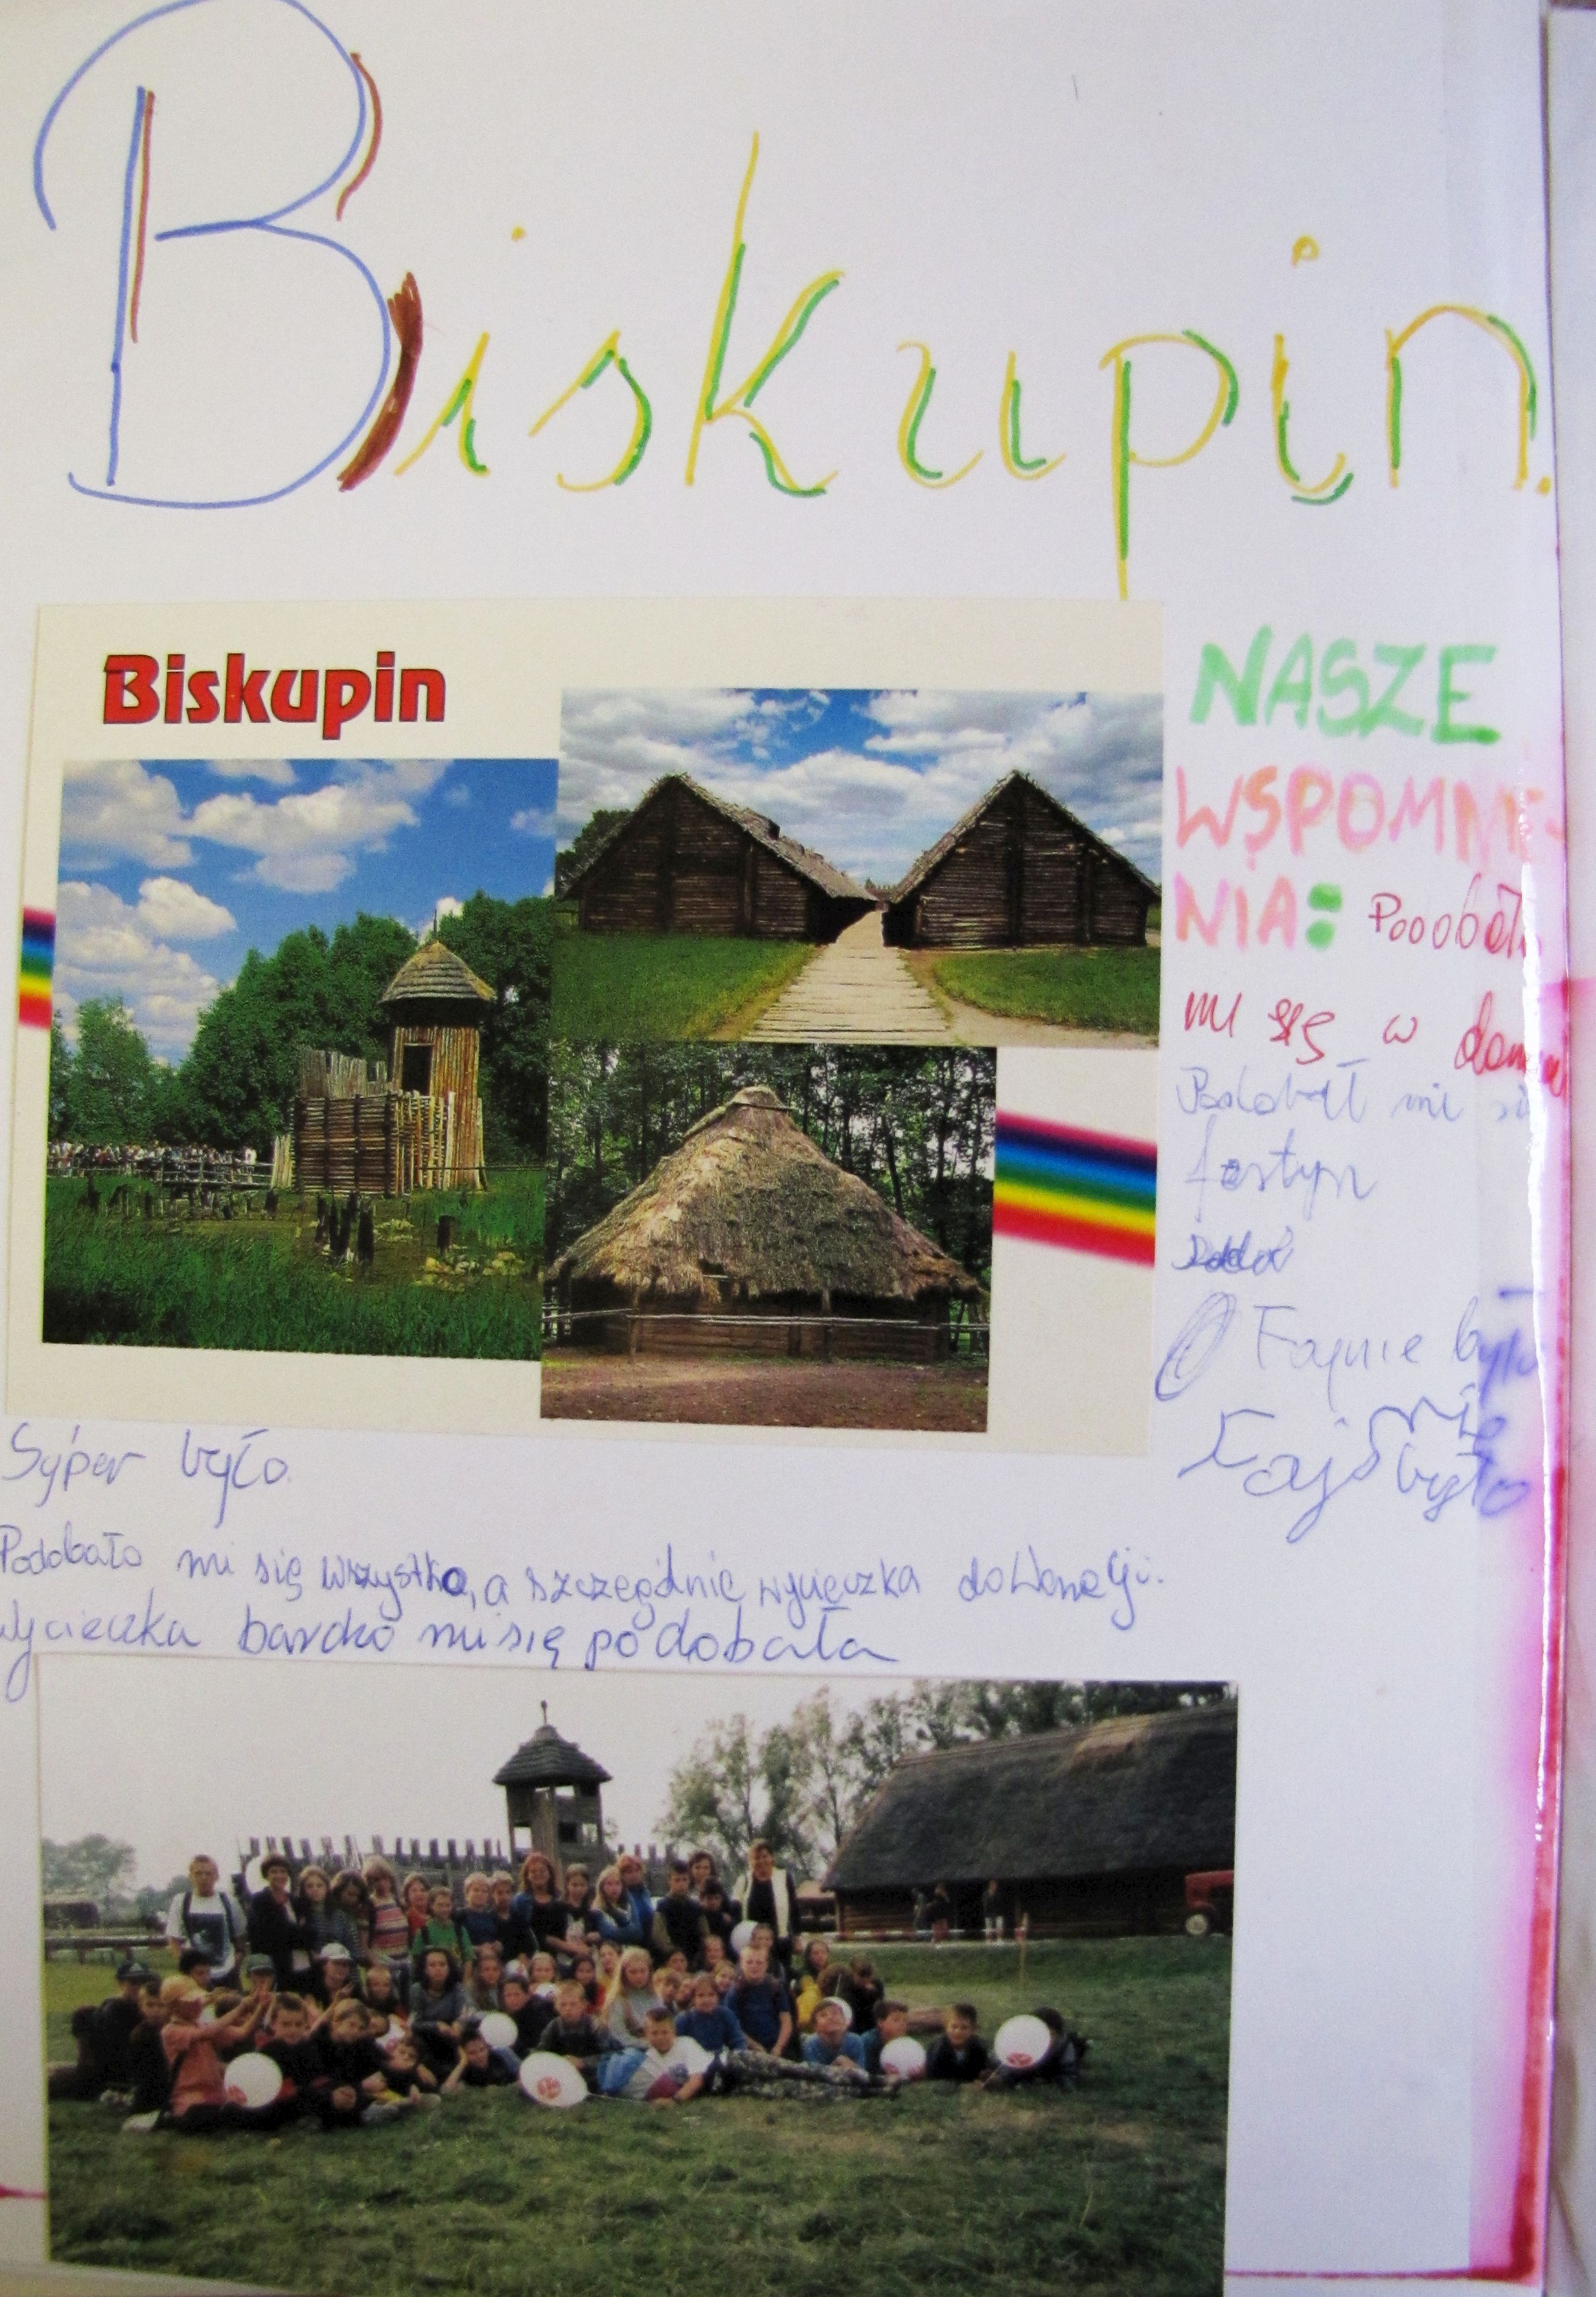 Biskupin.
Biskupin
NASZE
WSPOMNIE-
NIA: Podobało
mi się w domu
Podobał mi się
festyn
Fajnie było
Fajnie
było
Super było.
Podobało mi się wszystko, a szczególnie wycieczka do Wenecji.
Wycieczka bardzo mi się podobała